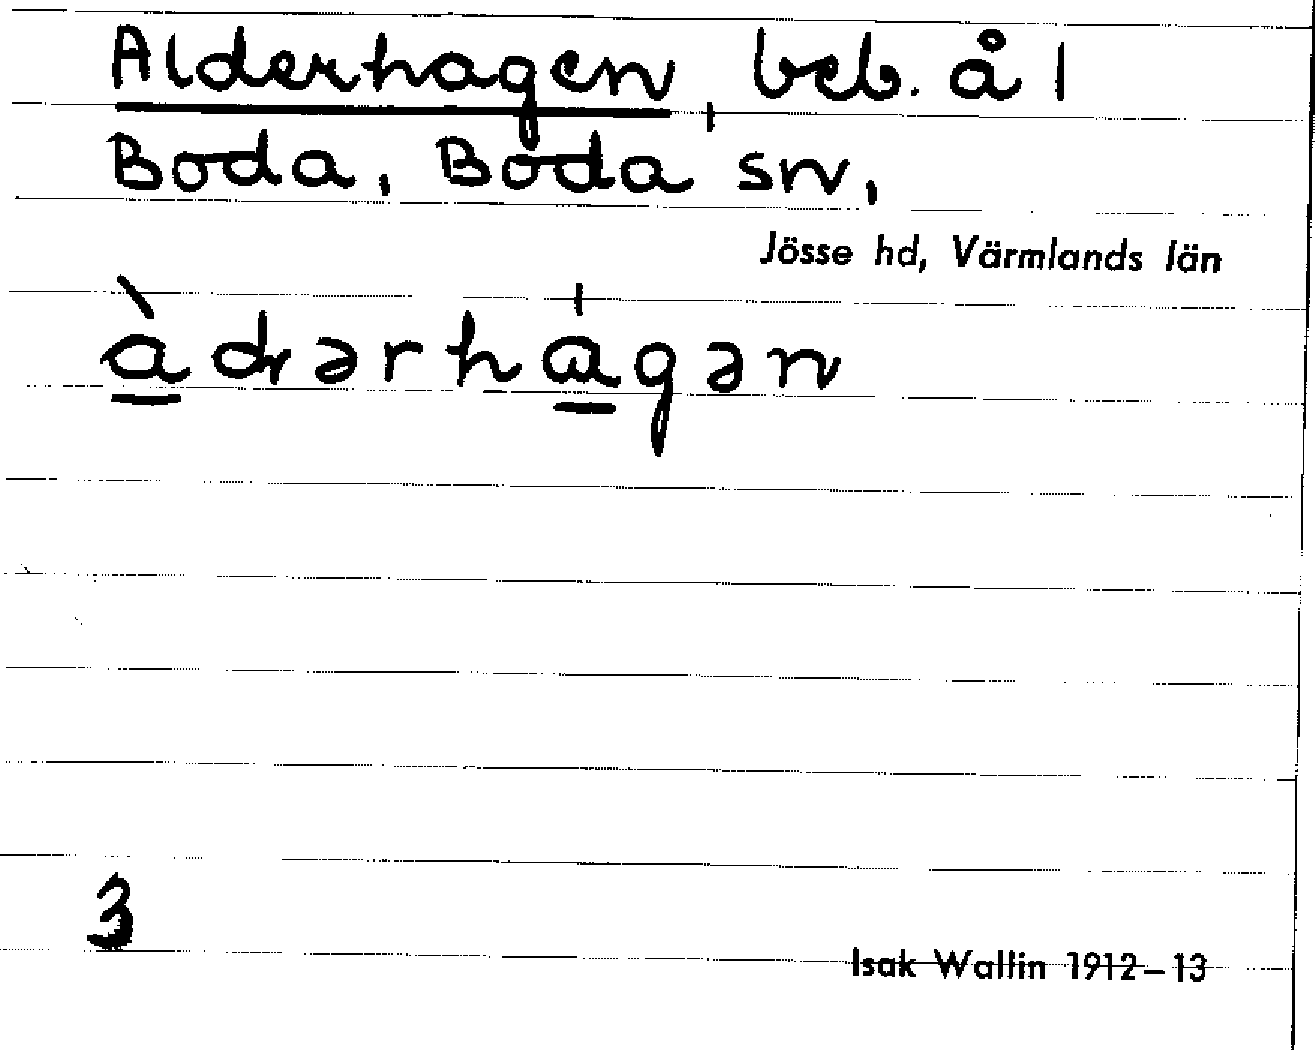 Alderhagen, beb. å 1
Boda, Boda sn,
Jösse hd, Värmlands län
àdərhagən
3
Isak Wallin 1912–13